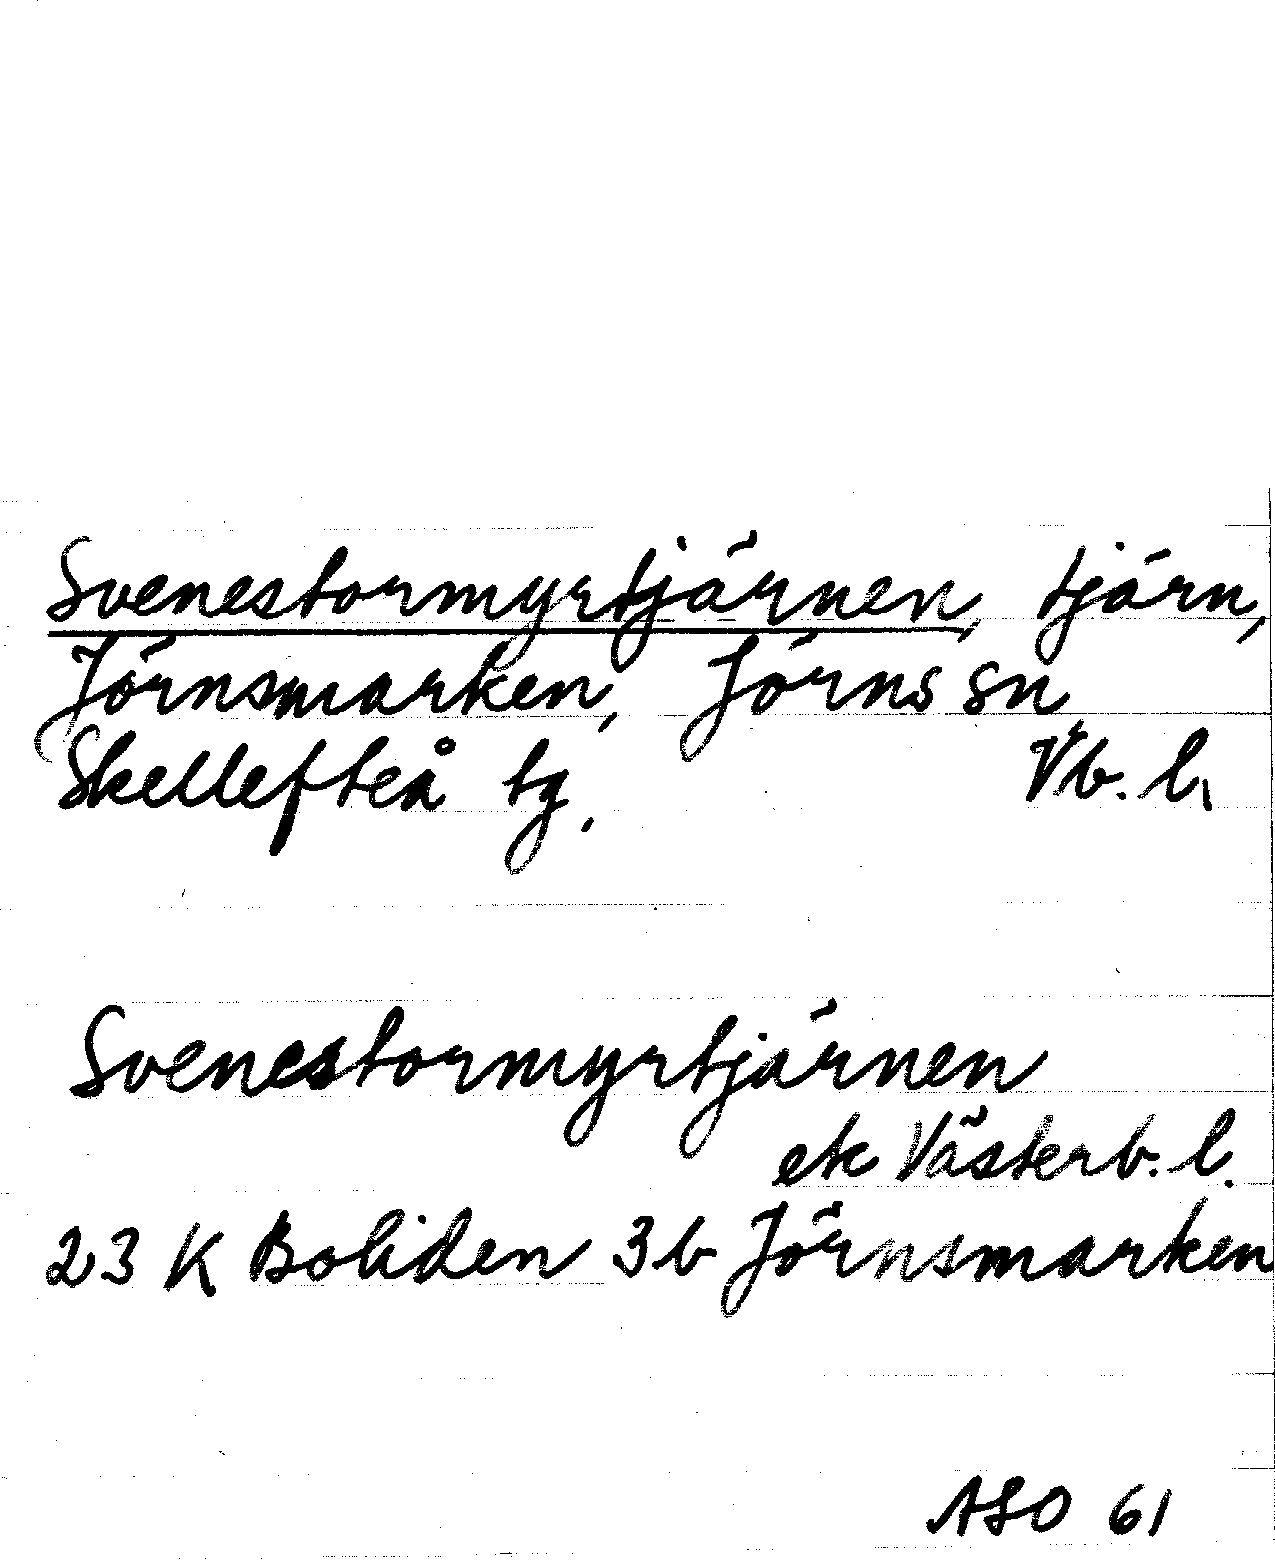 Svenestormyrtjärnen, tjärn,
Jörnsmarken, Jörns sn,
Skellefteå tg. Vb. l.
Svenestormyrtjärnen
ek Västerb. l.
23 K Boliden 3b Jörnsmarken
ASO 61